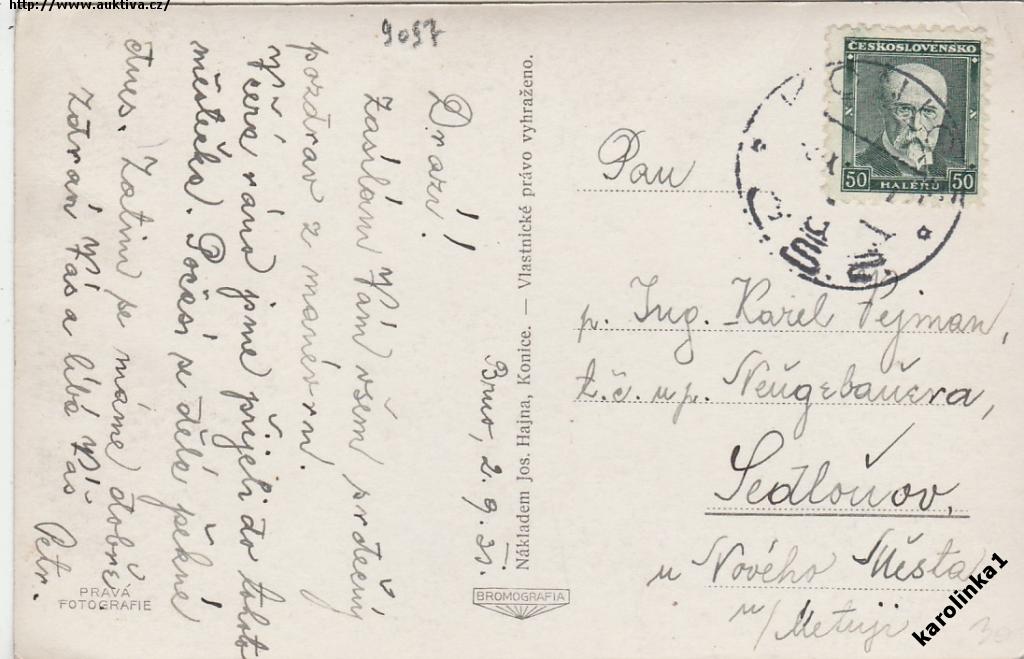 http://www.auktiva.cz/
9097
Drazí!
Zasílám Vám všem srdečný
pozdrav z manévrů.
Včera ráno jsme přijeli do tohoto
městečka. Počasí se dělá pěkné
dnes. Zatím se máme dobře.
Zdraví Vás a líbá Váš
Petr.
Brno, 2.9.31.
PRAVÁ
FOTOGRAFIE
Nákladem Jos. Hajna, Konice. — Vlastnické právo vyhraženo.
BROMOGRAFIA
ČESKOSLOVENSKO
50 HALÉŘŮ 50
Pan
p. Ing. Karel Pejman,
t.č. u p. Neugebauera,
Sedloňov,
u Nového Města
n/Metují
30
karolinka1